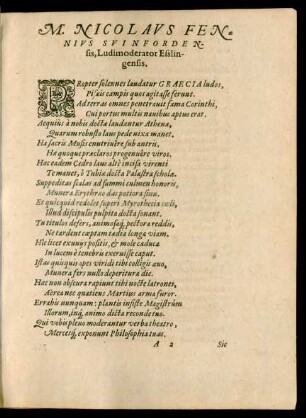 M. NICOLAVS FEN-
NIVS SVINFORDEN-
sis, Ludimoderator Esslin-
gensis.
PRopter solennes laudatur GRAECIA ludos,
Pisæis campis quos agitasse ferunt.
Ad terras omnes penetrauit fama Corinthi,
Cui portus multis nauibus aptus erat.
Acquius à nobis docta laudantur Athenæ,
Quarum robusto laus pede nixa manet.
Hæ sacris Musis enutriuêre sub antris,
Hæ quoque præclaros progenuêre viros.
Hac eadem Cedro laus altè incisa virenti
Te manet, ô Tubia docta Palæstra schola.
Suppeditas scalas ad summi culmen honoris,
Munera Erythræo das potiora sinu.
Et quicquid redolet superi Myrothecia cœli,
Illud discipulis pulpita docta sonant.
Tu titulos defers, animosq́; pectora reddis,
Ne tardent cæptam tædia longa viam.
Hîc licet exuuijs positis, & mole caduca
In lucem è tenebris exeruisse caput.
Istas quisquis opes viridi tibi colligis æuo,
Munera fers nullo deperitura die.
Hæc non obscura rapiunt tibi nocte latrones,
Aërea nec quatiens Martius arma furor.
Errabis nunquam: plantis insiste Magistrûm
Illorum, inq́; animo dicta reconde tuo.
Qui vobis pleno moderantur verba theatro,
Mercesq́; exponunt Philosophia tuas.
A 2 Sic